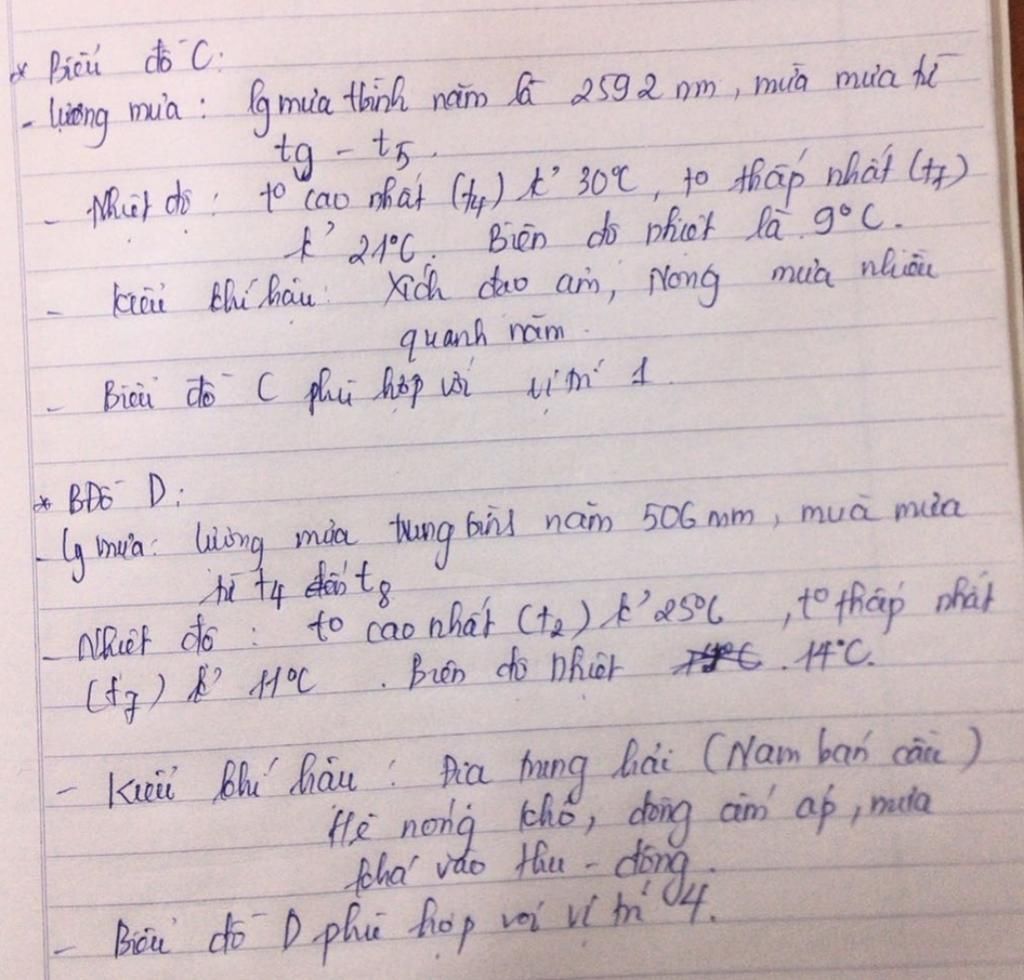 * Biểu đồ C:
- lượng mưa : lg mưa tbình năm là 2592 mm, mùa mưa từ
t9 - t5.
- Nhiệt độ : to cao nhất (t4) k' 30°C, to thấp nhất (t7)
k' 21°C. Biên độ nhiệt là 9°C.
- Kiểu khí hậu: Xích đạo ẩm, Nóng mưa nhiều
quanh năm.
- Biểu đồ C phù hợp với vị trí 1
* BĐồ D:
- lg mưa: lượng mưa trung bình năm 506 mm, mùa mưa
từ t4 đến t8
- Nhiệt độ : to cao nhất (t2) k' 25°C , to thấp nhất
(t7) k' 11°C . Biên độ nhiệt 14°C.
- Kiểu khí hậu : Địa trung hải (Nam bán cầu)
Hè nóng khô, đông ấm áp, mưa
khá vào thu - đông.
- Biểu đồ D phù hợp với vị trí 4.